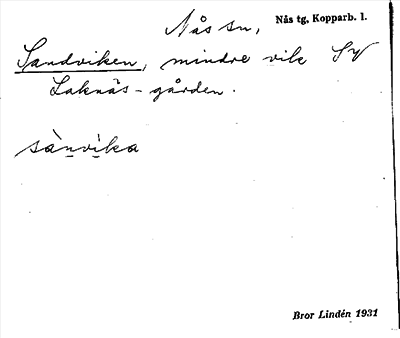 Nås sn, Nås tg, Kopparb. l.
Sandviken, mindre vik SV
Laknäs-gården.
sànvika
Bror Lindén 1931